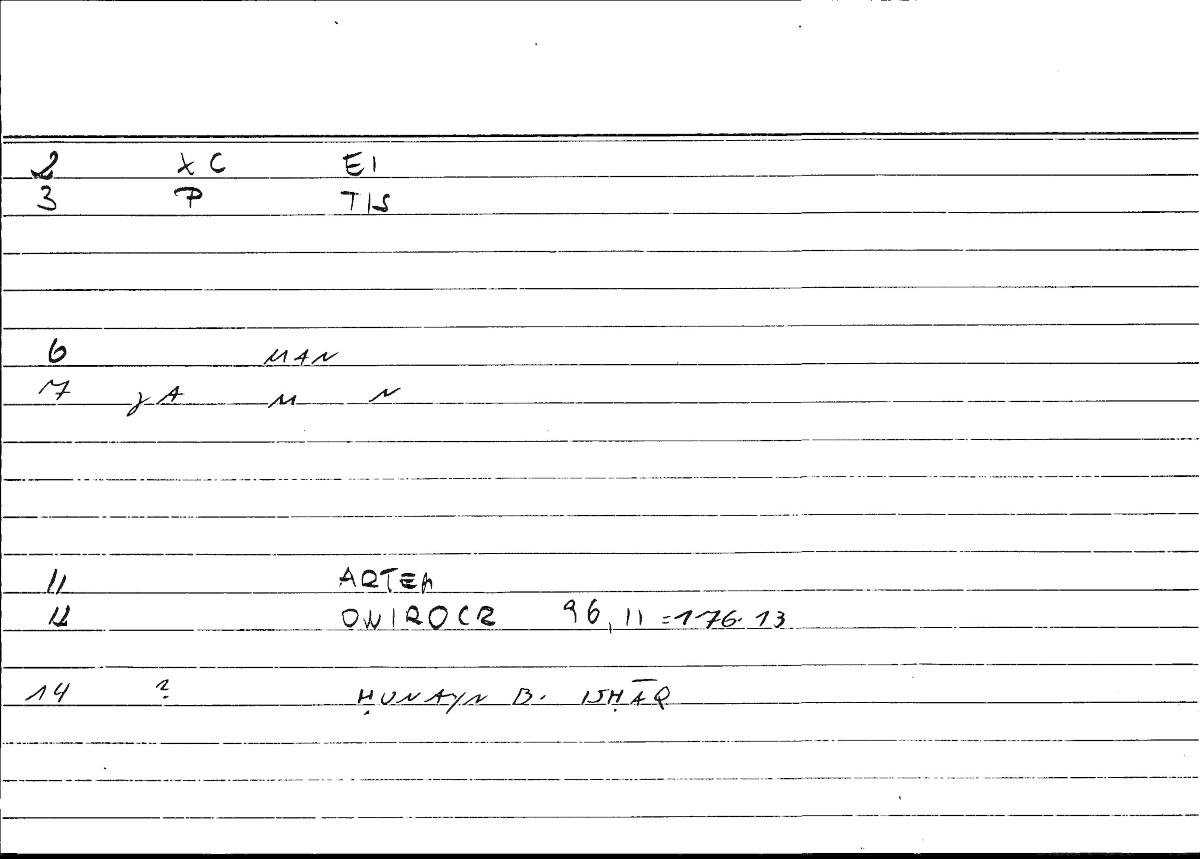 2 XC EI
3 P TIS
6 MAN
7 JA M N
11 ARTEM
12 ONIROCR 96,11=176.13
14 ? ḤUNAYN B. ISḤĀQ